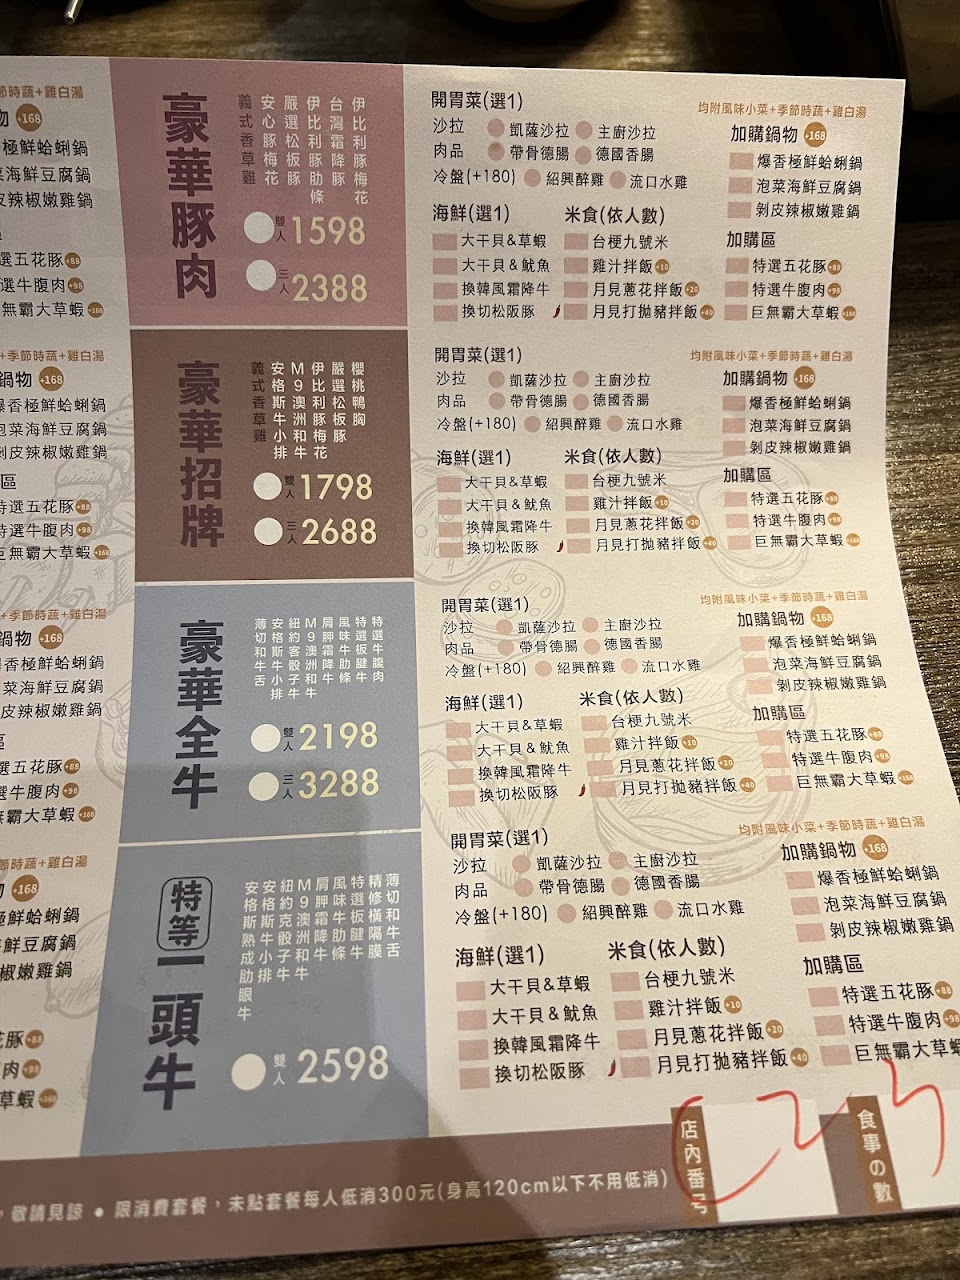 節時蔬+雞白湯
物 +168
極鮮蛤蜊鍋
菜海鮮豆腐鍋
皮辣椒嫩雞鍋
區
選五花豚+88
選牛腹肉+98
無霸大草蝦+168
+季節時蔬+雞白湯
鍋物 +168
爆香極鮮蛤蜊鍋
泡菜海鮮豆腐鍋
剝皮辣椒嫩雞鍋
區
特選五花豚+88
特選牛腹肉+98
巨無霸大草蝦+168
+季節時蔬+雞白湯
鍋物 +168
香極鮮蛤蜊鍋
菜海鮮豆腐鍋
皮辣椒嫩雞鍋
區
選五花豚+88
選牛腹肉+98
無霸大草蝦+168
節時蔬+雞白湯
物 +168
極鮮蛤蜊鍋
鮮豆腐鍋
椒嫩雞鍋
花豚+88
肉+98
草蝦+168
豪華豚肉
伊比利豚梅花
台灣霜降豚
伊比利豚肋條
嚴選松板豚
安心豚梅花
義式香草雞
雙人 1598
三人 2388
開胃菜(選1)
沙拉 凱薩沙拉 主廚沙拉
肉品 帶骨德腸 德國香腸
冷盤(+180) 紹興醉雞 流口水雞
海鮮(選1)
大干貝&草蝦
大干貝&魷魚
換韓風霜降牛
換切松阪豚
米食(依人數)
台梗九號米
雞汁拌飯+10
月見蔥花拌飯+20
月見打拋豬拌飯+40
均附風味小菜+季節時蔬+雞白湯
加購鍋物 +168
爆香極鮮蛤蜊鍋
泡菜海鮮豆腐鍋
剝皮辣椒嫩雞鍋
加購區
特選五花豚+88
特選牛腹肉+98
巨無霸大草蝦+168
豪華招牌
櫻桃鴨胸
嚴選松板豚
伊比利豚梅花
M9澳洲和牛
安格斯牛小排
義式香草雞
雙人 1798
三人 2688
開胃菜(選1)
沙拉 凱薩沙拉 主廚沙拉
肉品 帶骨德腸 德國香腸
冷盤(+180) 紹興醉雞 流口水雞
海鮮(選1)
大干貝&草蝦
大干貝&魷魚
換韓風霜降牛
換切松阪豚
米食(依人數)
台梗九號米
雞汁拌飯+10
月見蔥花拌飯+20
月見打拋豬拌飯+40
均附風味小菜+季節時蔬+雞白湯
加購鍋物 +168
爆香極鮮蛤蜊鍋
泡菜海鮮豆腐鍋
剝皮辣椒嫩雞鍋
加購區
特選五花豚+88
特選牛腹肉+98
巨無霸大草蝦+168
豪華全牛
特選牛腹肉
特選板腱牛
風味牛肋條
肩胛霜降牛
M9澳洲和牛
紐約客骰子牛
安格斯牛小排
薄切和牛舌
雙人 2198
三人 3288
開胃菜(選1)
沙拉 凱薩沙拉 主廚沙拉
肉品 帶骨德腸 德國香腸
冷盤(+180) 紹興醉雞 流口水雞
海鮮(選1)
大干貝&草蝦
大干貝&魷魚
換韓風霜降牛
換切松阪豚
米食(依人數)
台梗九號米
雞汁拌飯+10
月見蔥花拌飯+20
月見打拋豬拌飯+40
均附風味小菜+季節時蔬+雞白湯
加購鍋物 +168
爆香極鮮蛤蜊鍋
泡菜海鮮豆腐鍋
剝皮辣椒嫩雞鍋
加購區
特選五花豚+88
特選牛腹肉+98
巨無霸大草蝦+168
特等一頭牛
薄切和牛舌
精修橫隔膜
特選板腱牛
風味牛肋條
肩胛霜降牛
M9澳洲和牛
紐約克骰子牛
安格斯牛小排
安格斯熟成肋眼牛
雙人 2598
開胃菜(選1)
沙拉 凱薩沙拉 主廚沙拉
肉品 帶骨德腸 德國香腸
冷盤(+180) 紹興醉雞 流口水雞
海鮮(選1)
大干貝&草蝦
大干貝&魷魚
換韓風霜降牛
換切松阪豚
米食(依人數)
台梗九號米
雞汁拌飯+10
月見蔥花拌飯+20
月見打拋豬拌飯+40
均附風味小菜+季節時蔬+雞白湯
加購鍋物 +168
爆香極鮮蛤蜊鍋
泡菜海鮮豆腐鍋
剝皮辣椒嫩雞鍋
加購區
特選五花豚+88
特選牛腹肉+98
巨無霸大草蝦
，敬請見諒 ● 限消費套餐，未點套餐每人低消300元(身高120cm以下不用低消)
店內番号
食事の數